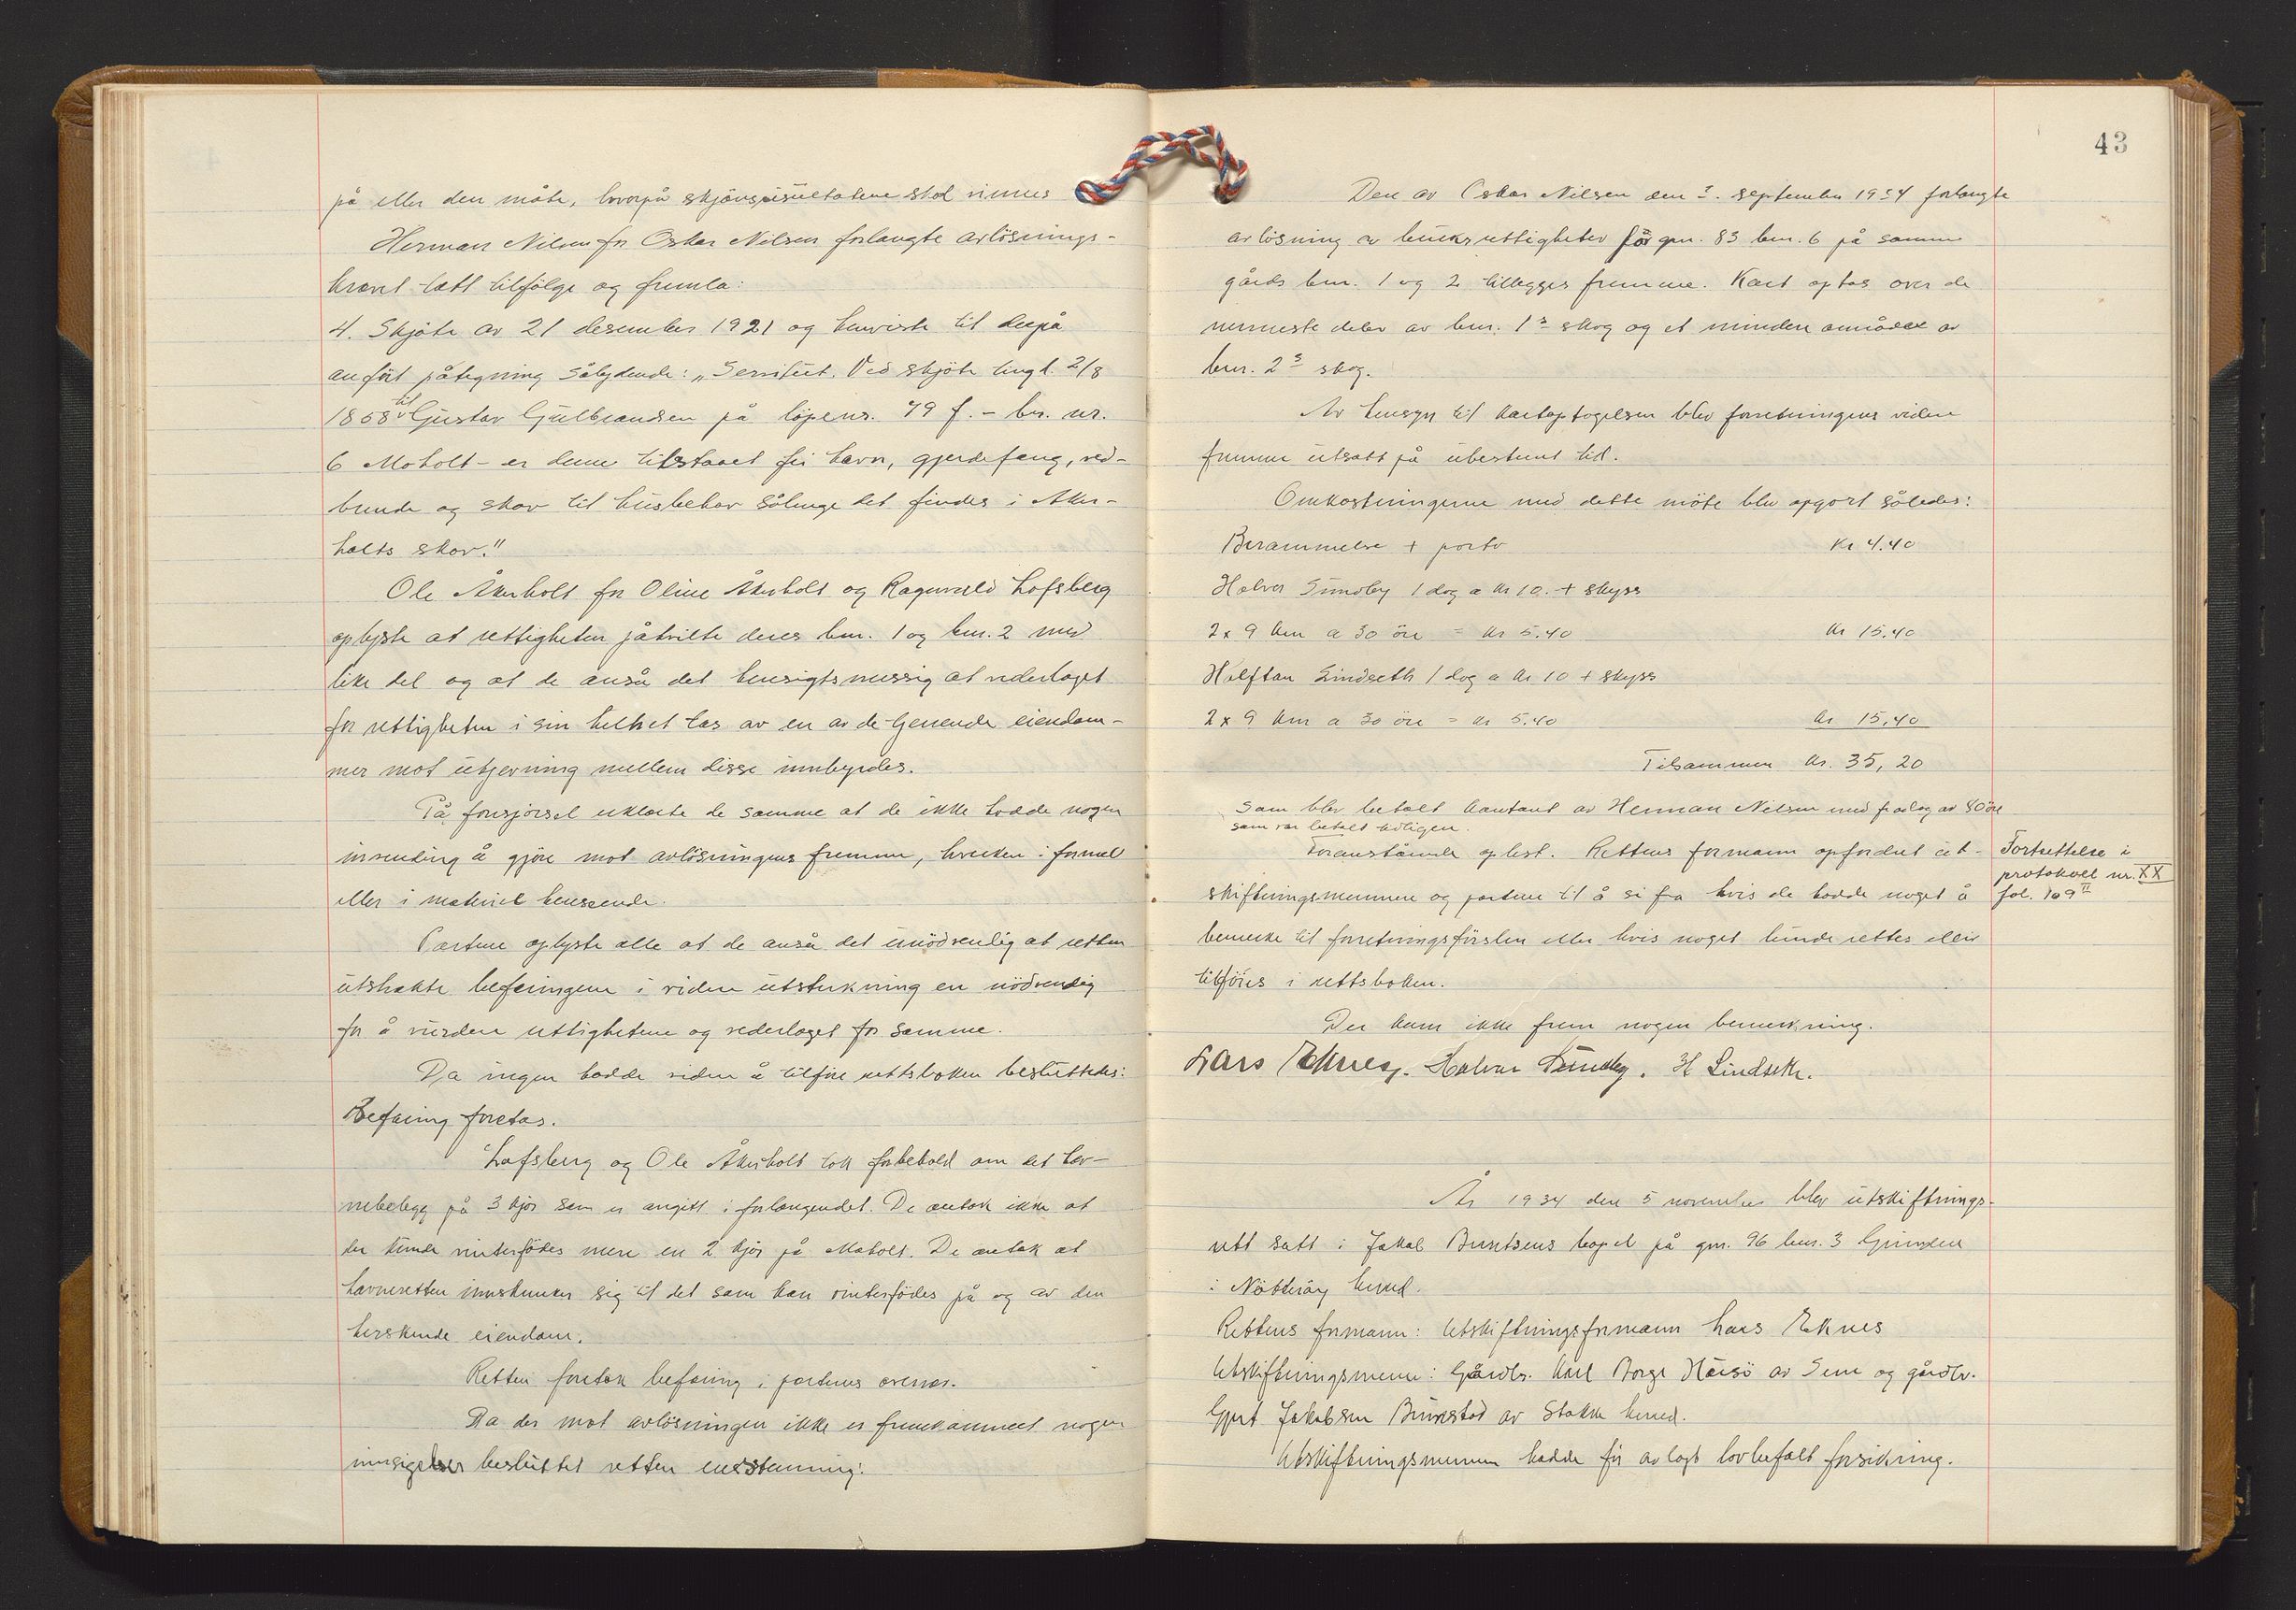 på eller den måte, hvorpå skjønsresultatene skal vinnes
Herman Nilsen for Oskar Nilsen forlangte avlösnings-
kravet tatt tilfölge og fremla:
4. Skjöte av 21 desember 1921 og henviste til derpå
anfört påtegning sålydende: „Servitut. Ved skjöte tingl. 2/8
1868 til Gustav Gulbrandsen på löpenr. 79 f. - br. nr.
6 Moholt - er denne tilstaaet fri havn, gjerdefang, ved-
brende og skov til husbehov sålenge det findes i Aker-
holts skov."
Ole Åkerholt for Oline Åkerholt og Ragnvald Lofsberg
oplyste at rettigheten påhvilte deres bnr. 1 og bnr. 2 med
like del og at de anså det hensigtsmessig at vederlaget
for rettigheten i sin helhet tas av en av de tjenende eiendom-
mer mot utjevning mellem disse innbyrdes.
På forespörsel erklærte de samme at de ikke hadde nogen
invending å gjöre mot avlösningens fremme, hverken i formel
eller i materiel henseende.
Partene oplyste alle at de anså det unödvendig at retten
utstrakte befaringene i videre utstrekning en nödvendig
for å vurdere rettighetene og vederlaget for samme.
Da ingen hadde videre å tilföre rettsboken besluttedes:
Befaring foretas.
Lofsberg og Ole Åkerholt tok forbehold om det hav-
nebelegg på 3 kjör som er angitt i forlangendet. De antok ikke at
der kunde vinterfödes mere en 2 kjör på Moholt. De antok at
havneretten innskrenker sig til det som kan vinterfödes på og av den
herskende eiendom.
Retten foretok befaring i partenes overvær.
Da der mot avlösningen ikke er fremkommet nogen
innsigelser besluttet retten enstemmig:
43
Den av Oskar Nilsen den 3. september 1934 forlangte
avlösning av bruksrettigheter for gnr. 83 bnr. 6 på samme
gårds bnr. 1 og 2 tillegges fremme. Kart optas over de
nermeste deler av bnr. 1s skog og et mindre område av
bnr. 2s skog.
Av hensyn til kartoptagelsen blev forretningens videre
fremme utsatt på ubestemt tid.
Omkostningene med dette möte blev opgort således:
Berammelse + porto Kr 4.40
Halvor Sundby 1 dag a kr 10. + skyss
2 x 9 km a 30 öre = kr 5.40 kr 15.40
Halftan Lindseth 1 dag a kr 10 + skyss
2 x 9 km a 30 öre = kr 5.40 kr 15,40
Tilsammen kr. 35,20
som blev betalt kontant av Herman Nilsen med fradrag av 80 öre
som var betalt tidligere.
Foranstående oplest. Rettens formann opfordret ut-
skiftningsmennene og partene til å si fra hvis de hadde noget å
bemerke til forretningsförslen eller hvis noget burde rettes eller
tilföres i rettsboken.
Fortsettelse i
protokoll nr. XX
fol. 109 II
Der kom ikke frem nogen bemerkning.
Lars Eknes. Halvor Sundby. H Lindseth.
År 1934 den 5 november blev utskiftnings-
rett satt i Jakob Berntsens bopel på gnr. 96 bnr. 3
i Nötteröy herred.
Rettens formann: Utskiftningsformann Lars Eknes
Utskiftningsmenn: Gårdbr. Karl Borge av Sem og gårdbr.
Gert Jakobsen av Stokke herred.
Utskiftningsmennene hadde för avlagt lovbefalt forsikring.